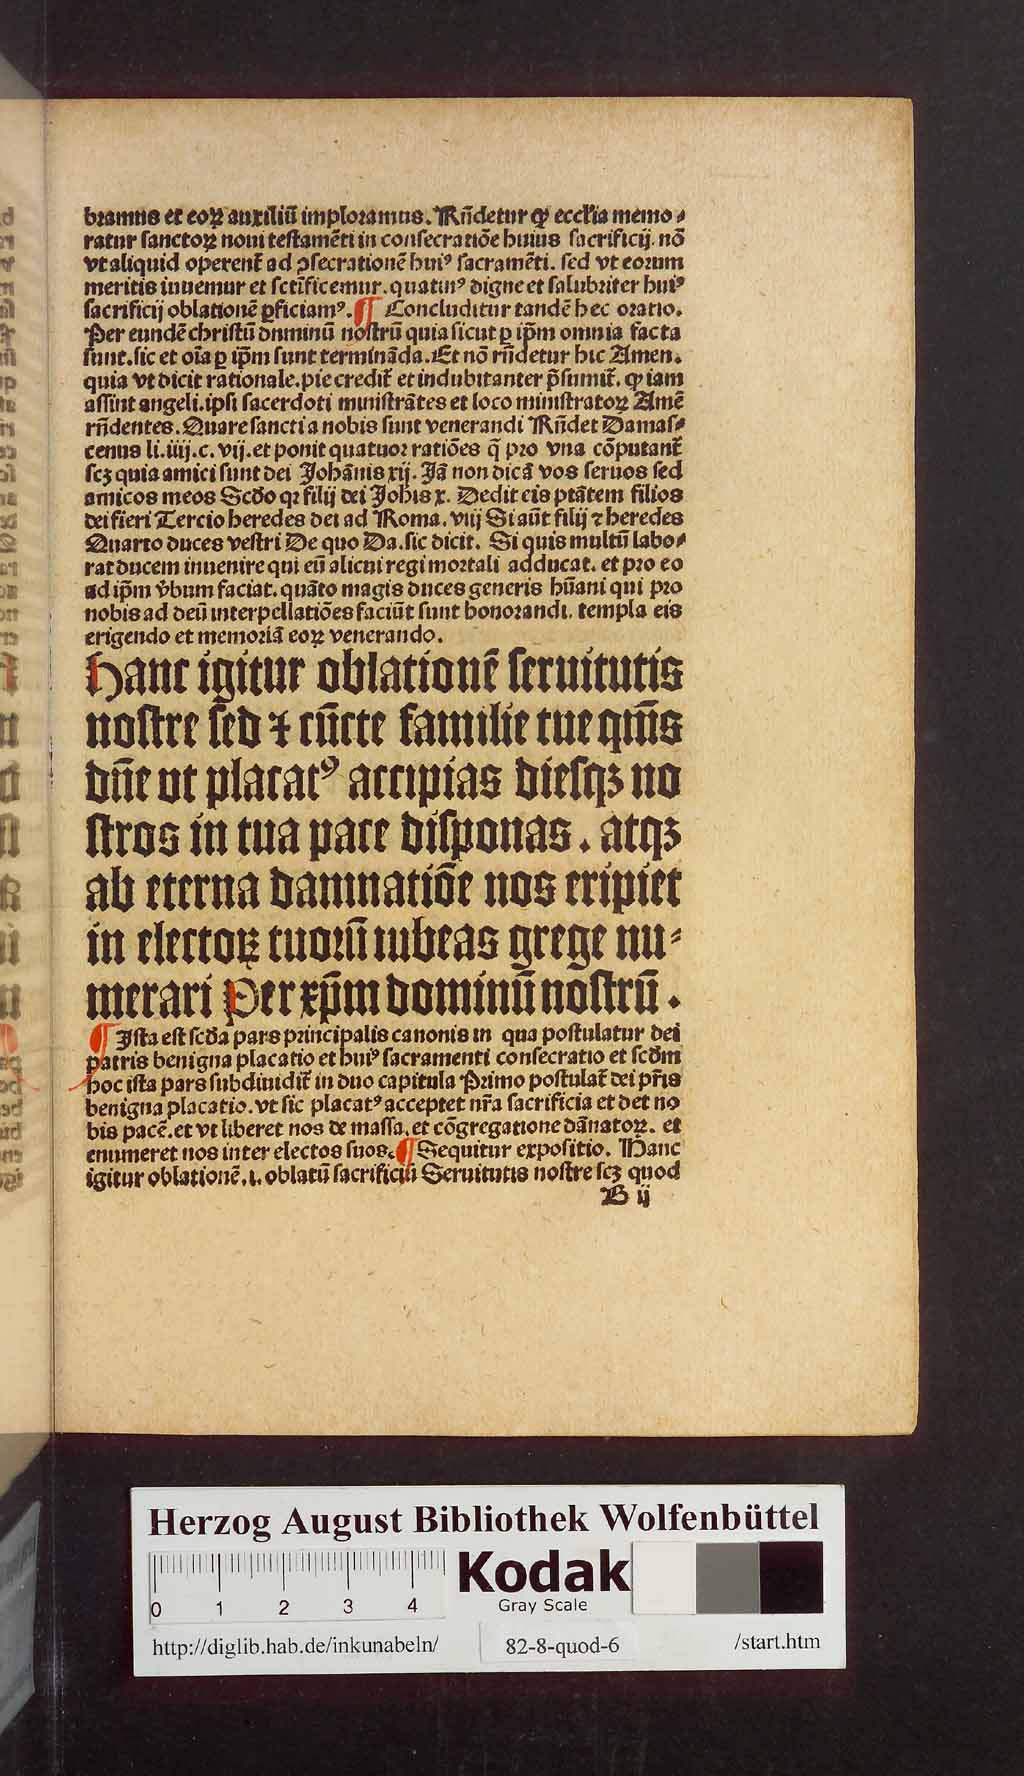 bramus et eoꝝ auxiliū imploramus. Rn̄detur ꝙ eccl'ia memo⸗
ratur sanctoꝝ noui testamēti in consecratiōe huius sacrificij. nō
vt aliquid operent̄ ad ↄsecrationē huiꝰ sacramēti. sed vt eorum
meritis iuuemur et sctīficemur. quatinꝰ digne et salubriter huiꝰ
sacrificij oblationē ꝑficiamꝰ. ¶ Concluditur tandē hec oratio.
Per eundē christū dnminū nostrū quia sicut ꝑ ip̄m omnia facta
sunt. sic et oīa ꝑ ip̄m sunt termināda. Et nō rn̄detur hic Amen.
quia vt dicit rationale. pie credit̄ et indubitanter p̄sumit̄. ꝙ iam
assint angeli. ipsi sacerdoti ministrātes et loco ministratoꝝ Amē
rn̄dentes. Quare sancti a nobis sunt venerandi Rn̄det Damas⸗
cenus li. iiij. c. vij. et ponit quatuor ratiōes q̄ pro vna cōputant̄
scꝫ quia amici sunt dei Johānis xij. Jā non dicā vos seruos sed
amicos meos Scd̄o qꝛ filij dei Joh̄is x. Dedit eis ptātem filios
dei fieri Tercio heredes dei ad Roma. viij Si aūt filij ⁊ heredes
Quarto duces vestri De quo Da. sic dicit. Si quis multū labo⸗
rat ducem inuenire qui eū alicui regi mortali adducat. et pro eo
ad ip̄m v̄bum faciat. quāto magis duces generis hūani qui pro
nobis ad deū interpellatiōes faciūt sunt honorandi. templa eis
erigendo et memoriā eoꝝ venerando.
Hanc igitur oblationē seruitutis
nostre sed ⁊ cūcte familie tue qm̄s
dn̄e ut placatꝰ accipias diesqꝫ no
stros in tua pace disponas. atqꝫ
ab eterna damnatiōe nos eripiet
in electoꝝ tuorū iubeas grege nu⸗
merari Per xp̄m dominū nostrū.
¶ Jsta est scd̄a pars principalis canonis in qua postulatur dei
patris benigna placatio et huiꝰ sacramenti consecratio et scd̄m
hoc ista pars subdiuidit̄ in duo capitula Primo postulat̄ dei pr̄is
benigna placatio. vt sic placatꝰ acceptet nr̄a sacrificia et det no
bis pacē. et vt liberet nos de massa. et cōgregatione dānatoꝝ. et
enumeret nos inter electos suos. ¶ Sequitur expositio. Hanc
igitur oblationē. i. oblatū sacrificiū Seruitutis nostre scꝫ quod
B ij
Herzog August Bibliothek Wolfenbüttel
0 1 2 3 4
Kodak
Gray Scale
http://diglib.hab.de/inkunabeln/ 82-8-quod-6 /start.htm